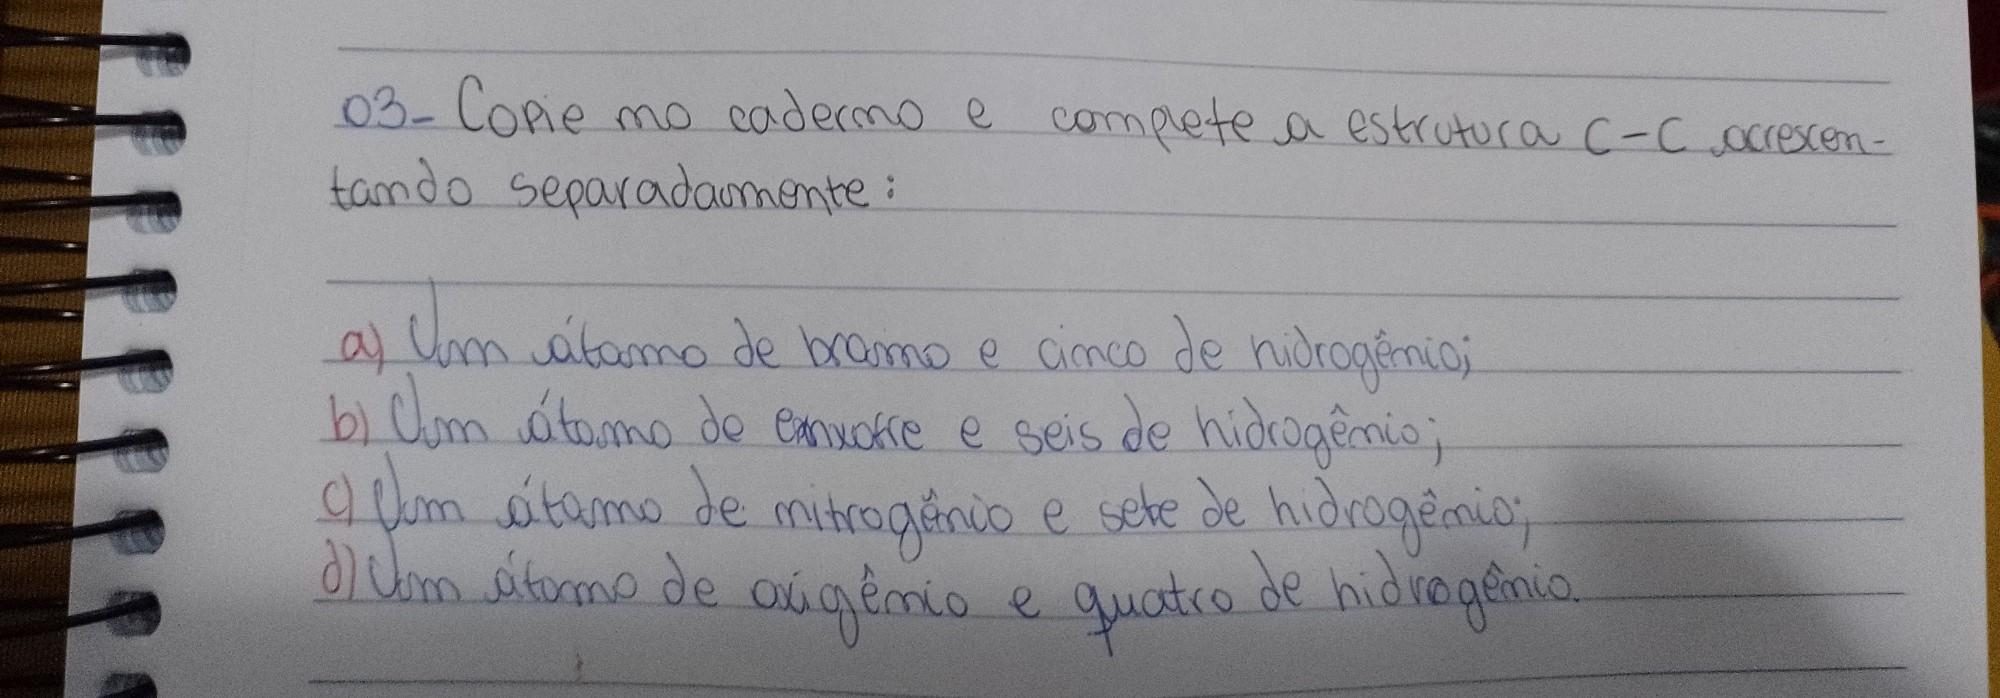 03- Copie no caderno e compete a estrutura C-C acrescen-
tando separadamente:
a) Um átomo de bromo e cinco de hidrogênio;
b) Um átomo de enxofre e seis de hidrogênio;
c) Um átomo de nitrogênio e sete de hidrogênio;
d) Um átomo de oxigênio e quatro de hidrogênio.